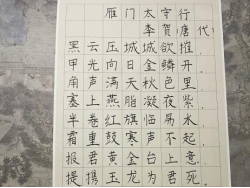 雁门太守行
李贺(唐代)
黑云压城城欲摧,
甲光向日金鳞开。
角声满天秋色里,
塞上燕脂凝夜紫。
半卷红旗临易水,
霜重鼓寒声不起。
报君黄金台上意,
提携玉龙为君死